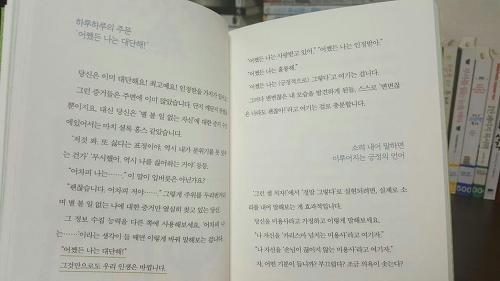 하루하루의 주문
'어쨌든 나는 대단해!'
당신은 이미 대단해요! 최고예요! 인정받을 가치가
그런 증거들은 주변에 이미 많았습니다. 단지 깨닫지
뿐이지요. 대신 당신은 '별 볼 일 없는 자신'에 대한 증거
에 있어서는 마치 셜록 홈스 같았습니다.
"저것 봐. 또 싫다는 표정이야. 역시 내가 분위기를 못
는 건가" "무시했어. 역시 나를 싫어하는 거야" 등등.
"어차피 나는……." 이 말이 입버릇은 아닌가요?
"괜찮습니다. 어차피 저야……." 그렇게 주위를
며 별 볼 일 없는 나에 대한 증거만 열심히 찾고 있는 당신.
그 정보 수집 능력을 다른 쪽에 사용해보세요. '어차피 나
는……'이라는 생각이 들 때면 이렇게 바꿔 말해보는 겁니다.
"어쨌든 나는 대단해!"
그것만으로도 우리 인생은 바뀝니다.
"어쨌든 나는 사랑받고 있어." "어쨌든 나는 인정받아."
"어쨌든 나는 훌륭해."
"어쨌든 나는 (긍정적으로) 그렇다"고 여기는 겁니다.
그러다 뻔뻔한 내 모습을 발견하게 된들, 스스로 '뻔뻔한
나라도 괜찮아!'라고 여기는 걸로 충분합니다.
소리 내어 말하면
이루어지는 긍정의 언어
'그런 셈 치자'에서 '정말 그렇다'로 실현되려면, 실제로 소
리를 내어 말해보는 게 효과적입니다.
당신을 미용사라고 가정하고 이렇게 말해보세요.
"나 자신을 '카리스마 넘치는 미용사'라고 여기자."
"나 자신을 '손님이 끊이지 않는 미용사'라고 여기자."
자, 어떤 기분이 듭니까? 부끄럽다? 조금 의욕이 솟는다?